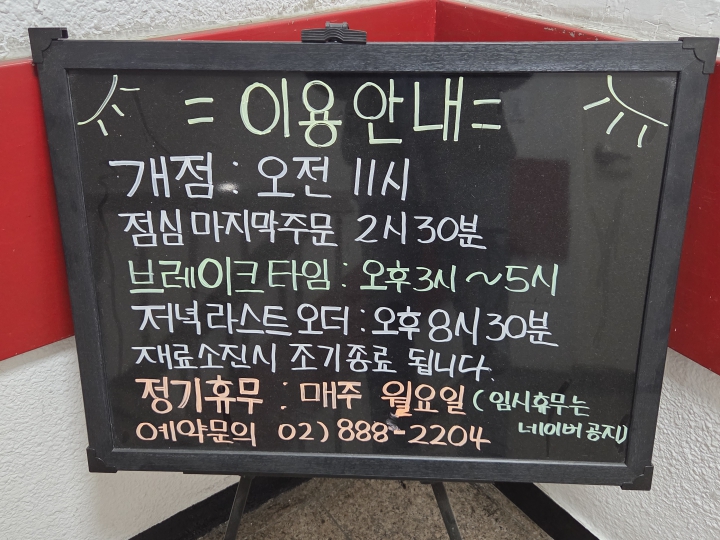 = 이용안내 =
개점 : 오전 11시
점심 마지막주문 2시 30분
브레이크타임 : 오후 3시 ~ 5시
저녁 라스트오더 : 오후 8시 30분
재료소진시 조기종료 됩니다.
정기휴무 : 매주 월요일 (임시휴무는
네이버 공지)
예약문의 02) 888-2204